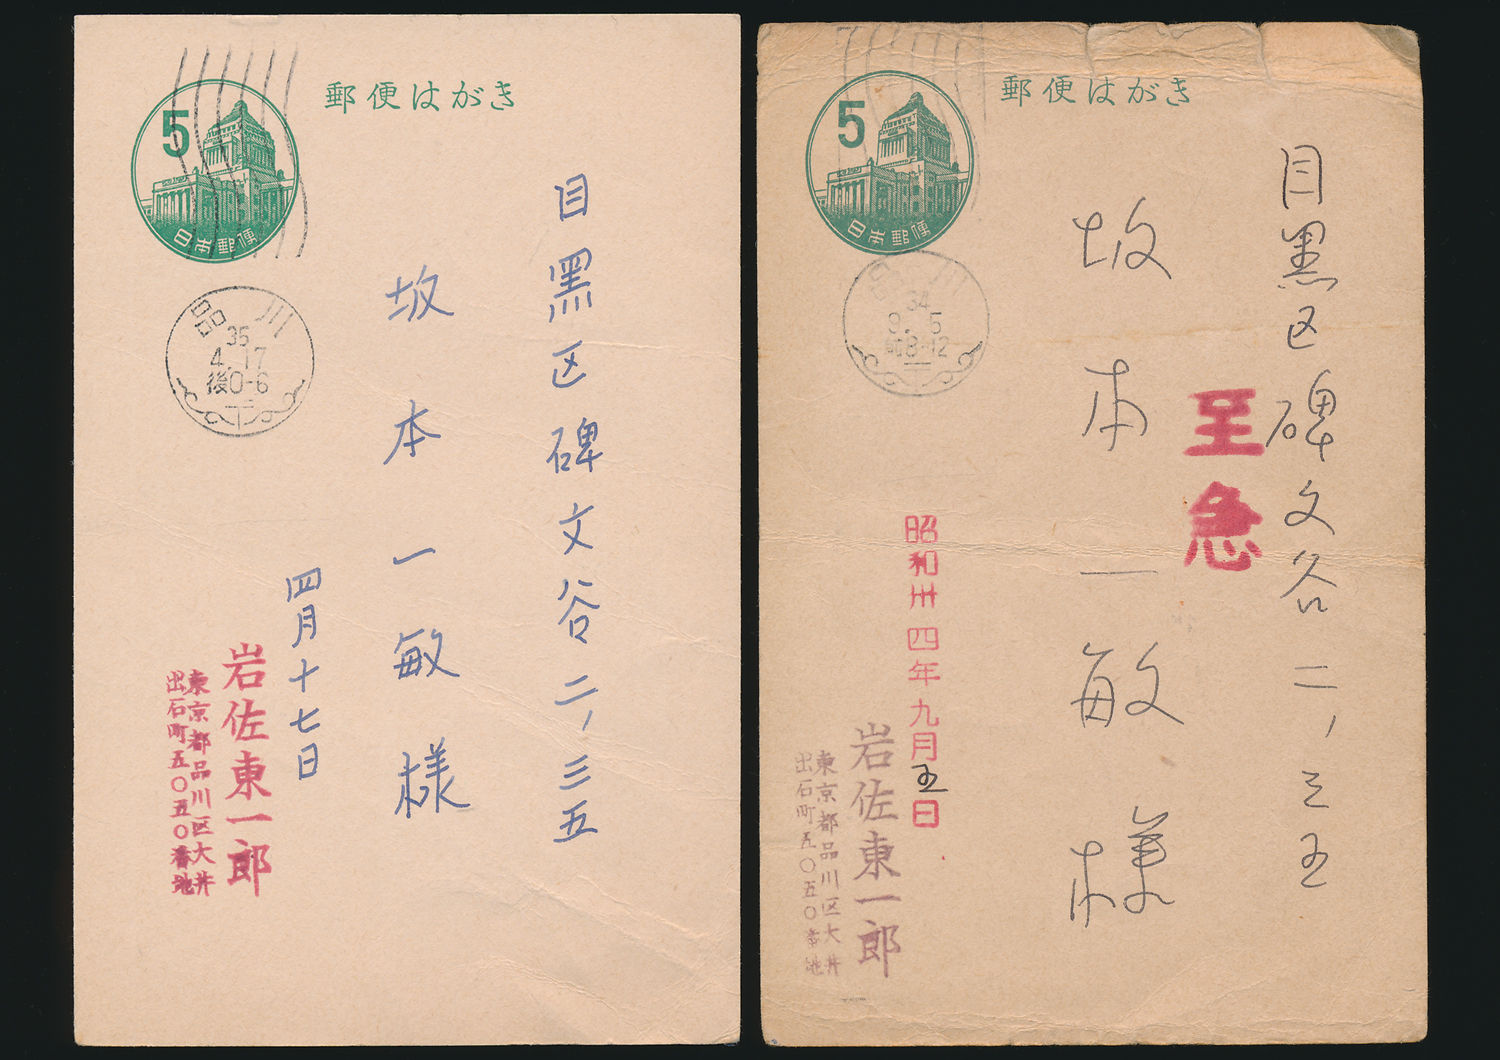 郵便はがき
5
日本郵便
品川
35
4.17
後0-6
目黒区碑文谷二、三五
坂本一敏様
四月十七日
岩佐東一郎
東京都品川区大井
出石町五〇五〇番地
郵便はがき
5
日本郵便
品川
34
9.5
前8-12
目黒区碑文谷二、三五
至急
坂本一敏様
昭和卅四年九月五日
岩佐東一郎
東京都品川区大井
出石町五〇五〇番地